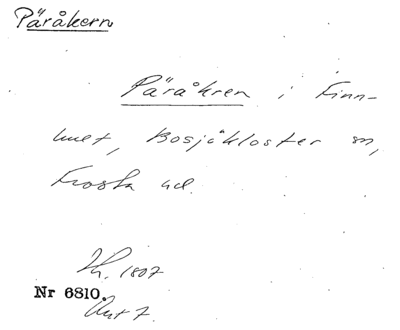 Päråkern
Påråkren i Finn-
hult, Bosjökloster sn,
Frosta hd.
1807
Nr 6810.